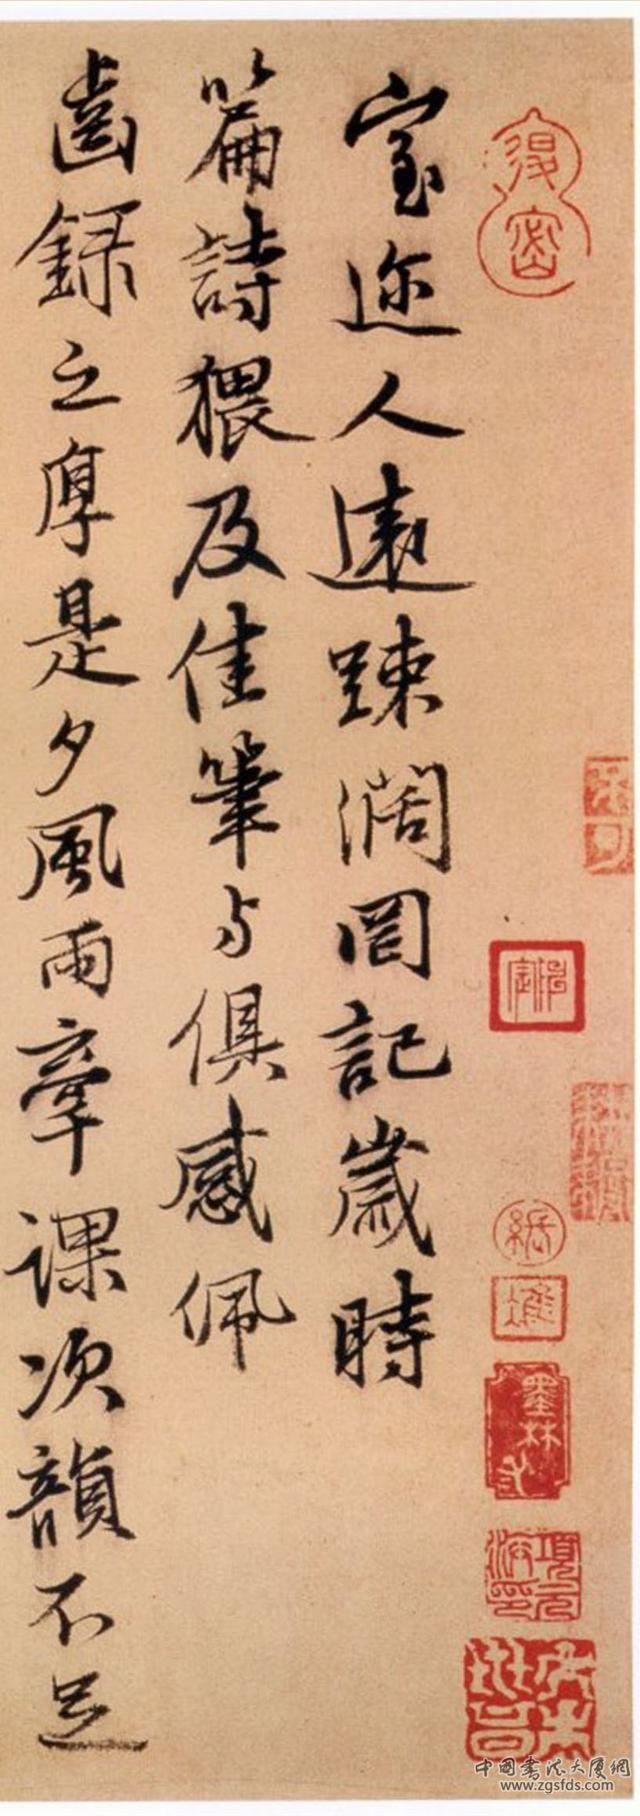 室迩人遠踈濶罔記歲時
篇詩猥及佳筆与俱感佩
齒録之厚是夕風雨牽課次韻不足
墨林
項元
中國書法大廈網
www.zgsfds.com